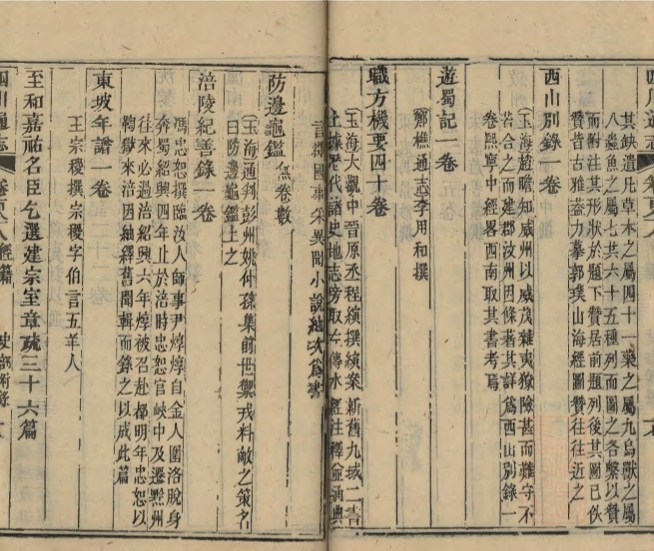 四川通志
卷百八
其缺遺凡草木之屬四十一藥之屬九鳥獸之屬
八蟲魚之屬七共六十五種列而圖之各繫以贊
而附注其形狀於題下贊居前題列後其圖已佚
贊皆古雅蓋力摹郭璞山海經圖贊往往近之
西山別錄一卷
玉海趙瞻知威州以威茂雜夷獠險甚而難守不
若合之而建郡汶州因條著其詳為西山別錄一
卷熙寧中經畧西南取其書考焉
遊蜀記一卷
鄭樵通志李用和撰
職方機要四十卷
玉海大觀中晉原丞程縯撰縯案新舊九域二書
上據歷代諸史地志旁取左傳水經注釋
言裸國事采異聞小說
防邊龜鑑 無卷數
玉海通判彭州姚仲孫集前世禦戎料敵之策名
曰防邊龜鑑上之
涪陵紀善錄一卷
馮忠恕撰臨汝人師事尹焞焞自金人圍洛脫身
奔蜀紹興四年止於涪時忠恕官峽中及遷黔州
往來必過涪紹興六年焞被召赴都明年忠恕以
鞫獄來涪因紬經舊聞輯而錄之以成此篇
東坡年譜一卷
王宗稷撰宗稷字伯言五羊人
至和嘉祐名臣乞選建宗室章疏三十六篇
四川通志
卷百八
經籍
史部附錄